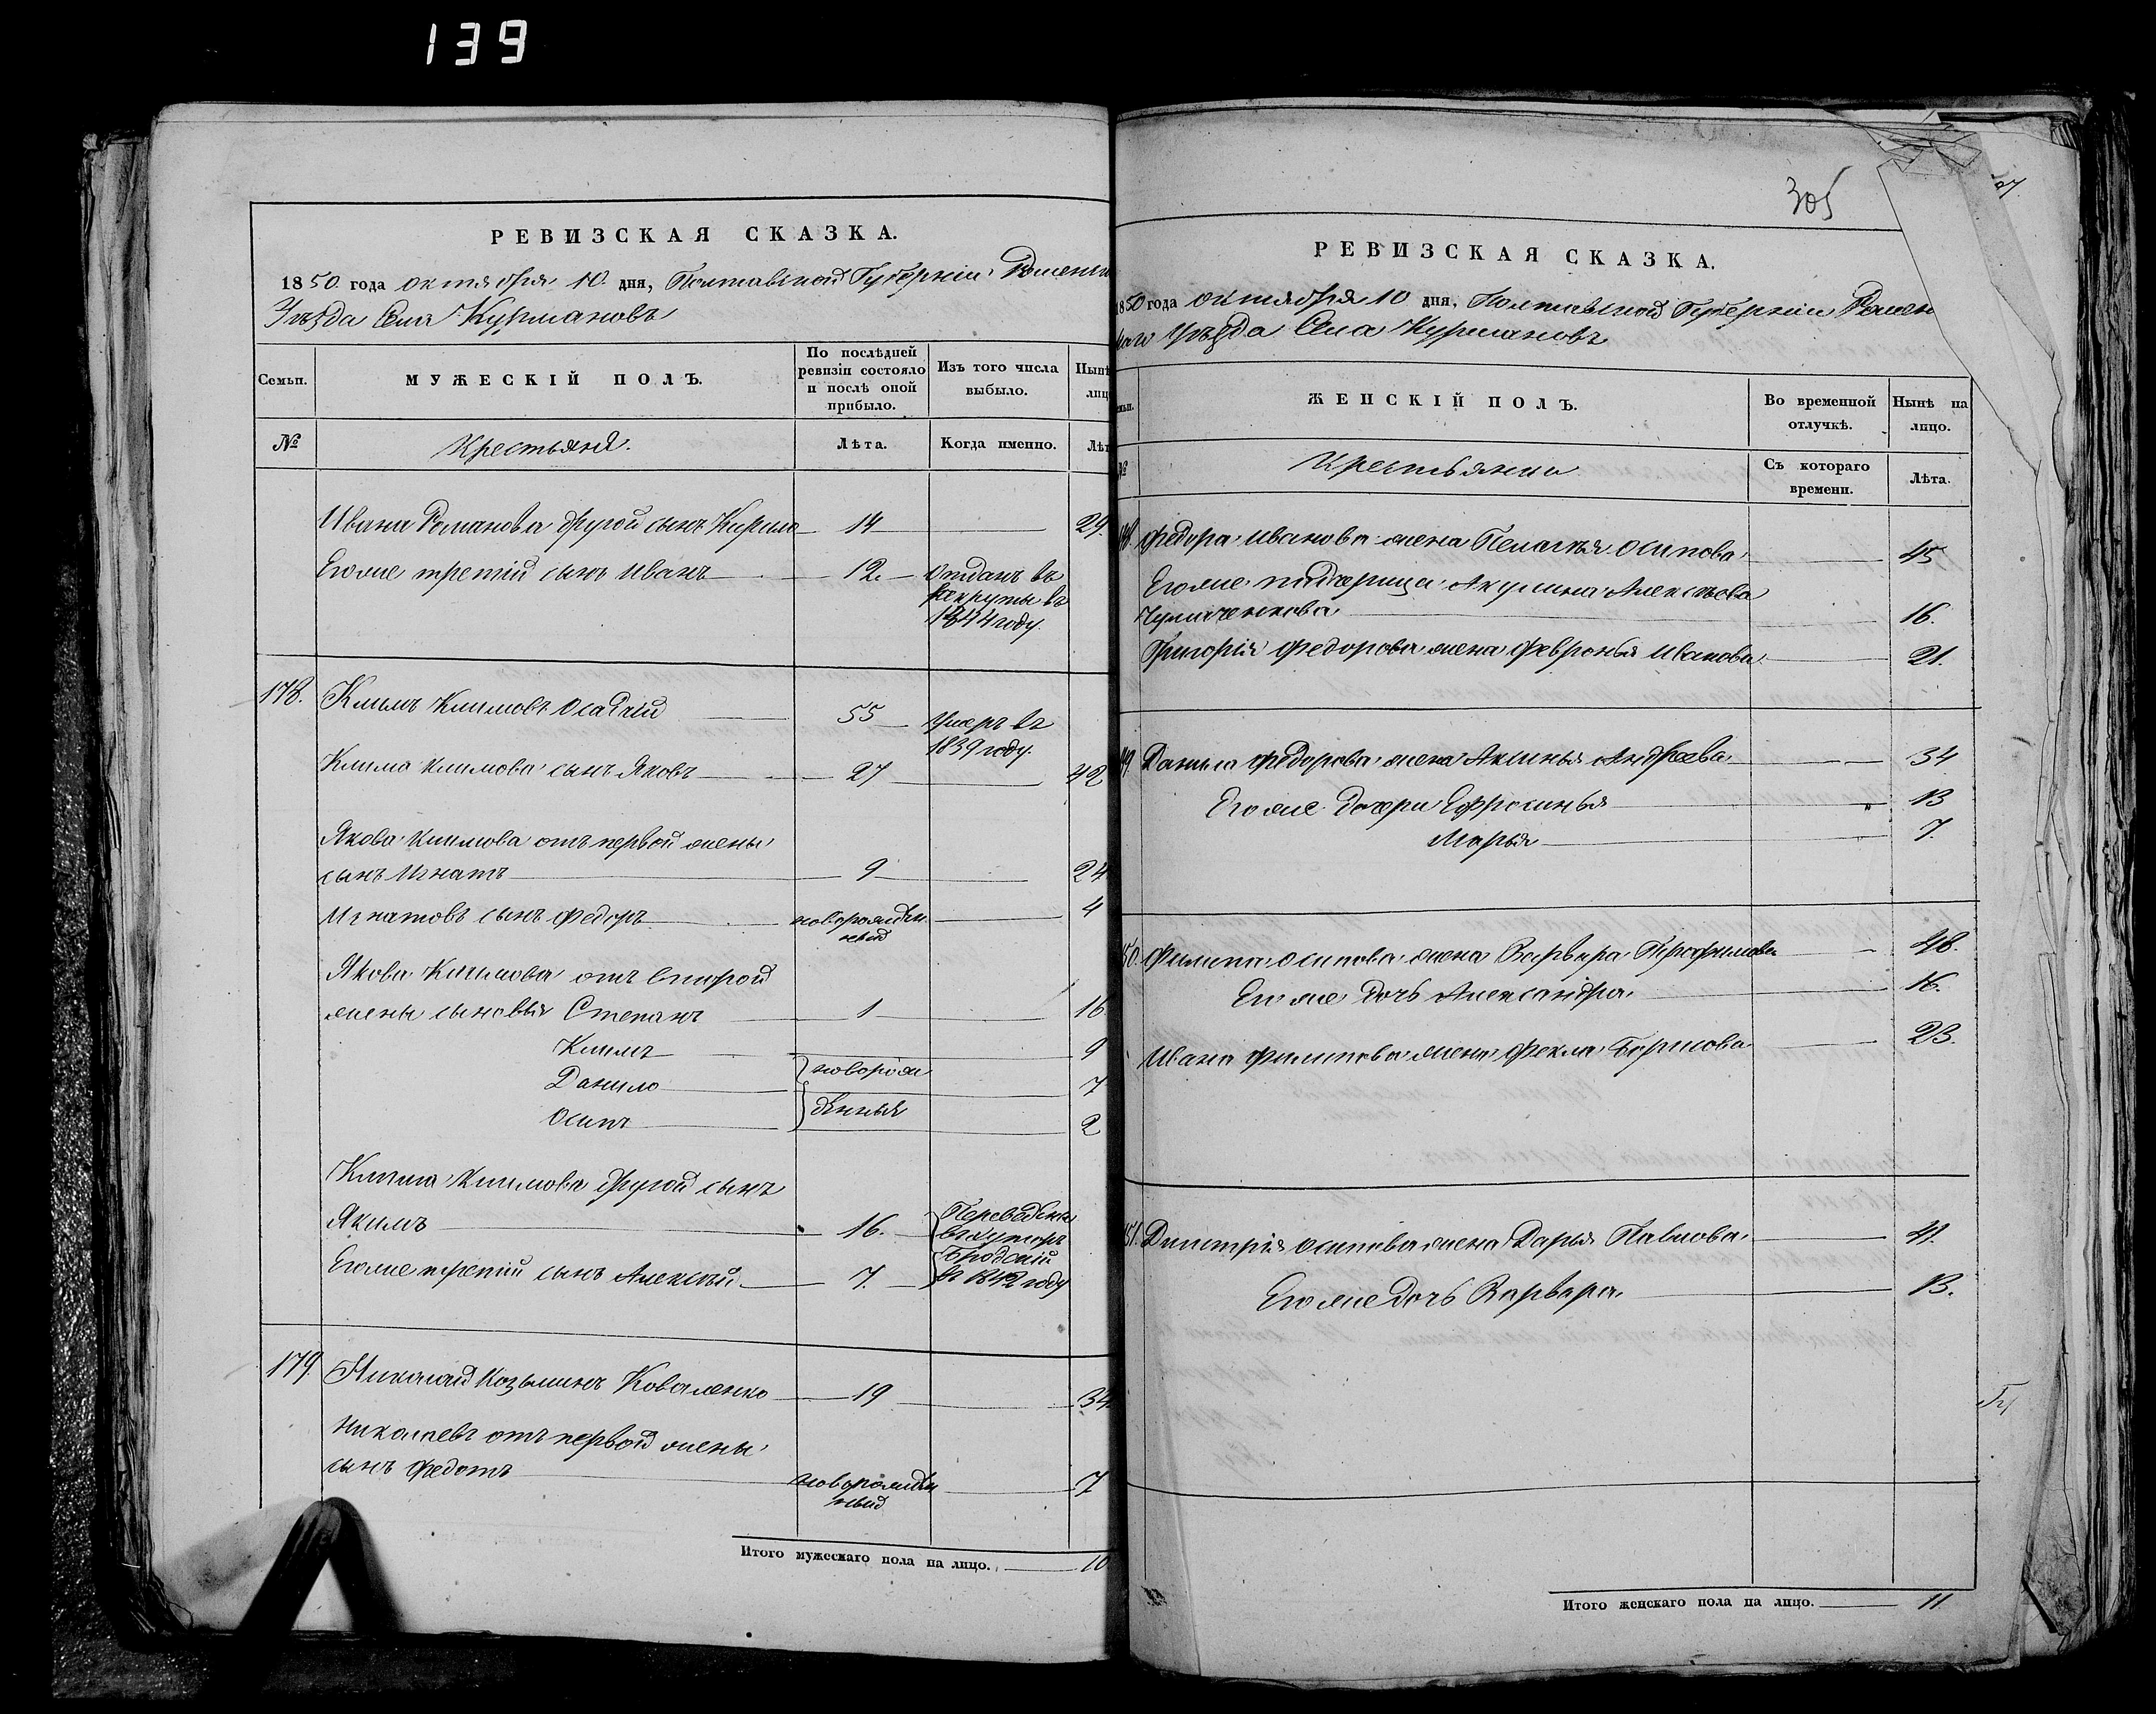 139
РЕВИЗСКАЯ СКАЗКА.
1850 года октября 10 дня, Полтавской Губерніи Роменска
Уѣзда Села Курмановъ
Семьи.
МУЖЕСКІЙ ПОЛЪ.
По послѣдней ревизіи состояло и послѣ оной прибыло.
Изъ того числа выбыло.
Нынѣ лиц
№
Крестьяне.
Лѣта.
Когда именно.
Лѣт
Ивана Романова другой сынъ Кирило 14 29.
Егоже третій сынъ Иванъ 12. Отданъ въ
рекруты въ
1844 году.
178. Климъ Климовъ Осадчій 55 Умеръ въ
1839 году.
Клима Климова сынъ Яковъ 27 42
Якова Климова отъ первой жены
сынъ Игнатъ 9 24
Игнатовъ сынъ Федоръ новорожден
ный 4
Якова Климова отъ второй
жены сыновья Степанъ 1 16
Климъ 9
Данило новорож 7
Осипъ денные 2
Клима Климова другой сынъ
Якимъ 16. Переведены
въ хуторъ
Егоже третій сынъ Алексѣй 7. Бродскій
въ 1842 году
179. Николай Козьминъ Коваленко 19 34
Николаевъ отъ первой жены
сынъ Федотъ новорожден
ный 7
Итого мужескаго пола на лицо. 10
305
РЕВИЗСКАЯ СКАЗКА.
1850 года октября 10 дня, Полтавской Губерніи Ромен
скаго Уѣзда Села Курмановъ
ЖЕНСКІЙ ПОЛЪ.
Во временной отлучкѣ.
Нынѣ на лицо.
№
Крестьяне
Съ котораго времени.
Лѣта.
Федора Иванова жена Пелагья Осипова 45
Егоже падчерица Акулина Алексѣева
Чумаченкова 16.
Григорія Федорова жена Февронья Иванова 21.
Данила Федорова жена Аксинья Андреева 34
Егоже дочери Ефросинья 13
Марья 7.
Филипа Осипова жена Варвара Трофимова 48.
Егоже дочь Александра 16.
Ивана Филипова жена Фекла Борисова 23.
Дмитрія Осипова жена Дарья Павлова 41.
Егоже дочь Варвара 13.
Итого женскаго пола на лицо. 11